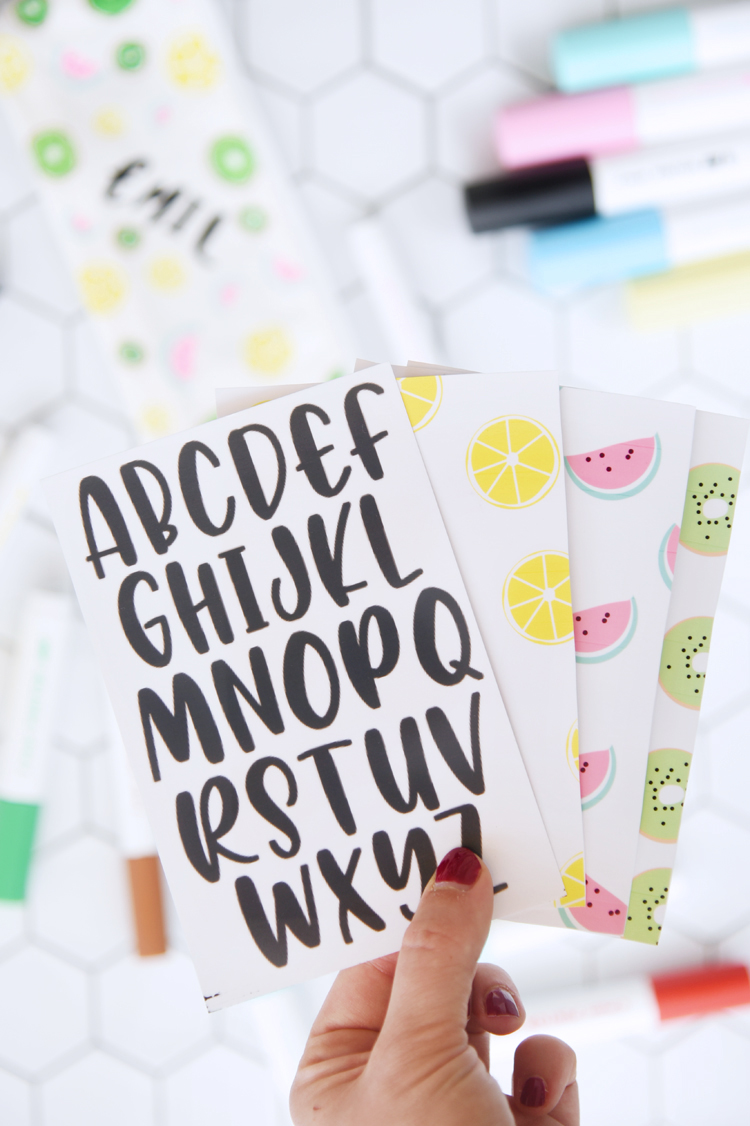 EMIL
ABCDEF
GHIJKL
MNOPQ
RSTUV
WXYZ